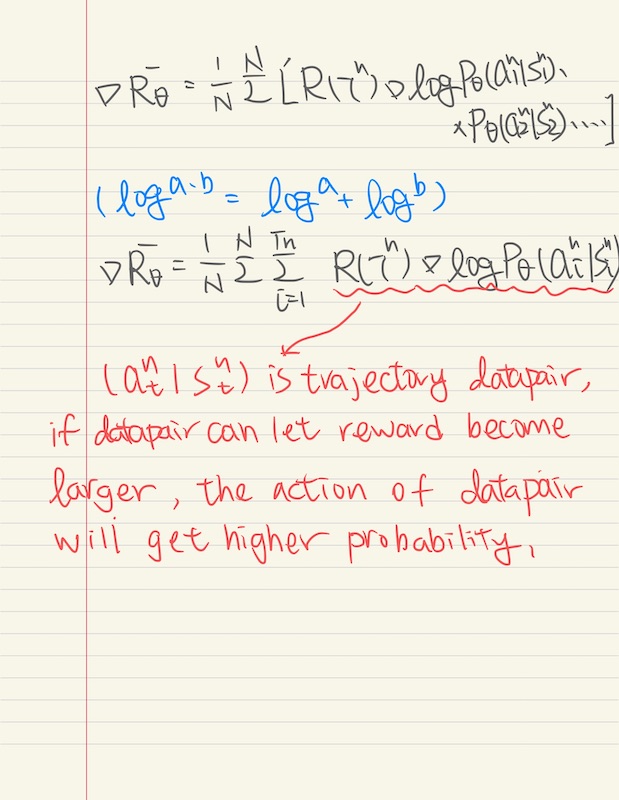 ∇R̄θ = 1/N Σ^N [R(τⁿ) ∇ logPθ(a₁ⁿ|s₁ⁿ)、
×Pθ(a₂ⁿ|s₂ⁿ)‥‥]
(log^{a·b} = log^a + log^b)
∇R̄θ = 1/N Σ^N Σ_{i=1}^{Tn} R(τⁿ) ∇ logPθ(aᵢⁿ|sᵢⁿ)
(aₜⁿ|sₜⁿ) is trajectory datapair,
if datapair can let reward become
larger, the action of datapair
will get higher probability,